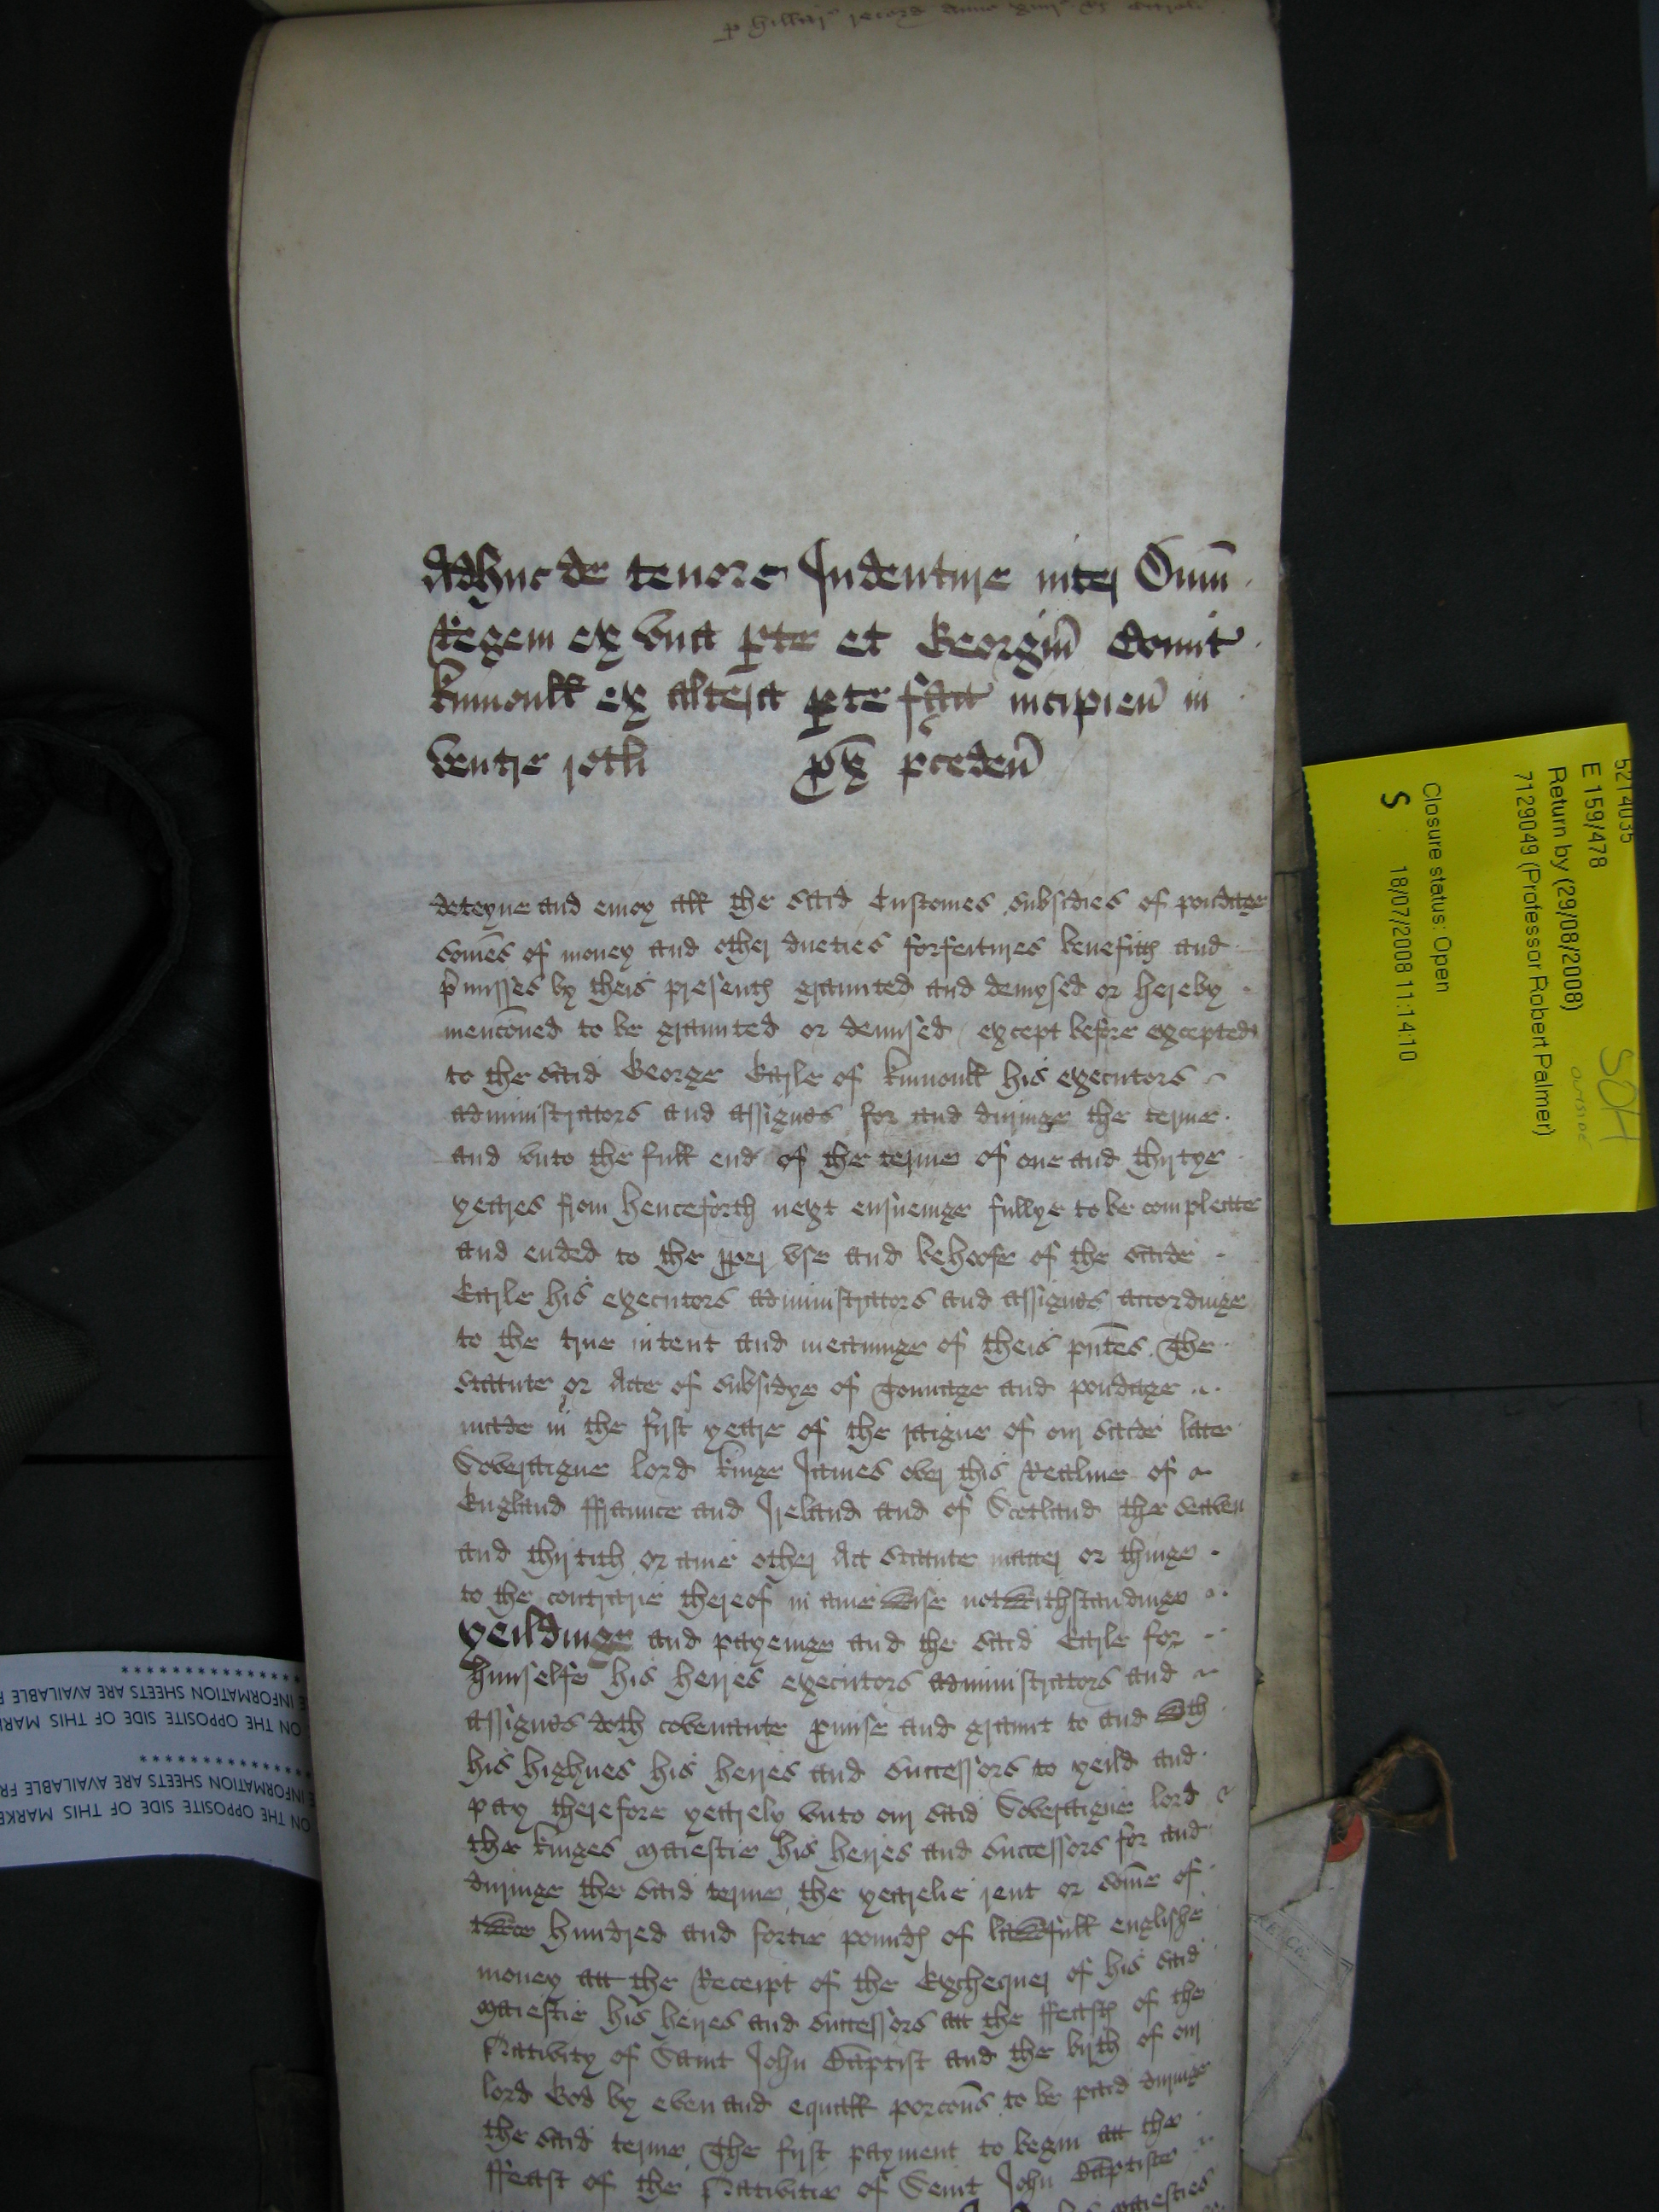 Adhuc de tenore Indenture inter Dnm̄
Regem ex vna pte et Georgiū Comit
Kinnoull ex altera pte fact incipien̄ in
ventre rotli px̄ pceden̄
deteyne and enioy all the said Customes subsidies of poundage
som̄es of money and other dueties forfeitures benefitts and
pmisses by theis presents graunted and demysed or hereby
menc̄oned to be graunted or demised except before excepted
to the said George Earle of Kinnoull his executors
administrators and assignes for and duringe the terme
and vnto the full end of the terme of one and thirtye
yeares from henceforth next ensueinge fullye to be compleate
and ended to the pper vse and behoofe of the saide
Earle his executors administrators and assignes accordinge
to the true intent and meaninge of theis pn̄tes The
statute or Acte of subsidye of Tonnage and poundage
made in the first yeare of the raigne of our saide late
Soveraigne lord Kinge James over this Realme of
England ffraunce and Ireland and of Scotland the seaven
and thirtith or anie other Act statute matter or thinge
to the contrarie thereof in anie wise notwithstandinge
yeildinge and payeinge and the said Earle for
himselfe his heires executors administrators and
assignes doth covenante pmise and graunt to and wth
his highnes his heires and successors to yeild and
pay therefore yearely vnto our said Soveraigne lord
the kinges Maiestie his heires and successors for and
duringe the said terme the yearelie rent or som̄e of
twoe hundred and fortie pounds of lawfull englishe
money att the Receipt of the Exchequer of his said
Maiestie his heires and successors att the ffeasts of the
Nativity of Saint John Baptist and the birth of our
lord God by even and equall porc̄ons to be paid duringe
the said terme The first payment to begin att the
ffeast of the Nativitie of Saint John Baptiste
Maiesties
5214035
E 159/478
Return by (29/08/2008)
7129049 (Professor Robert Palmer)
Closure status: Open
18/07/2008 11:14:10
S
****************
INFORMATION SHEETS ARE AVAILABLE
ON THE OPPOSITE SIDE OF THIS MARKE
***************
INFORMATION SHEETS ARE AVAILABLE FR
ON THE OPPOSITE SIDE OF THIS MARKE